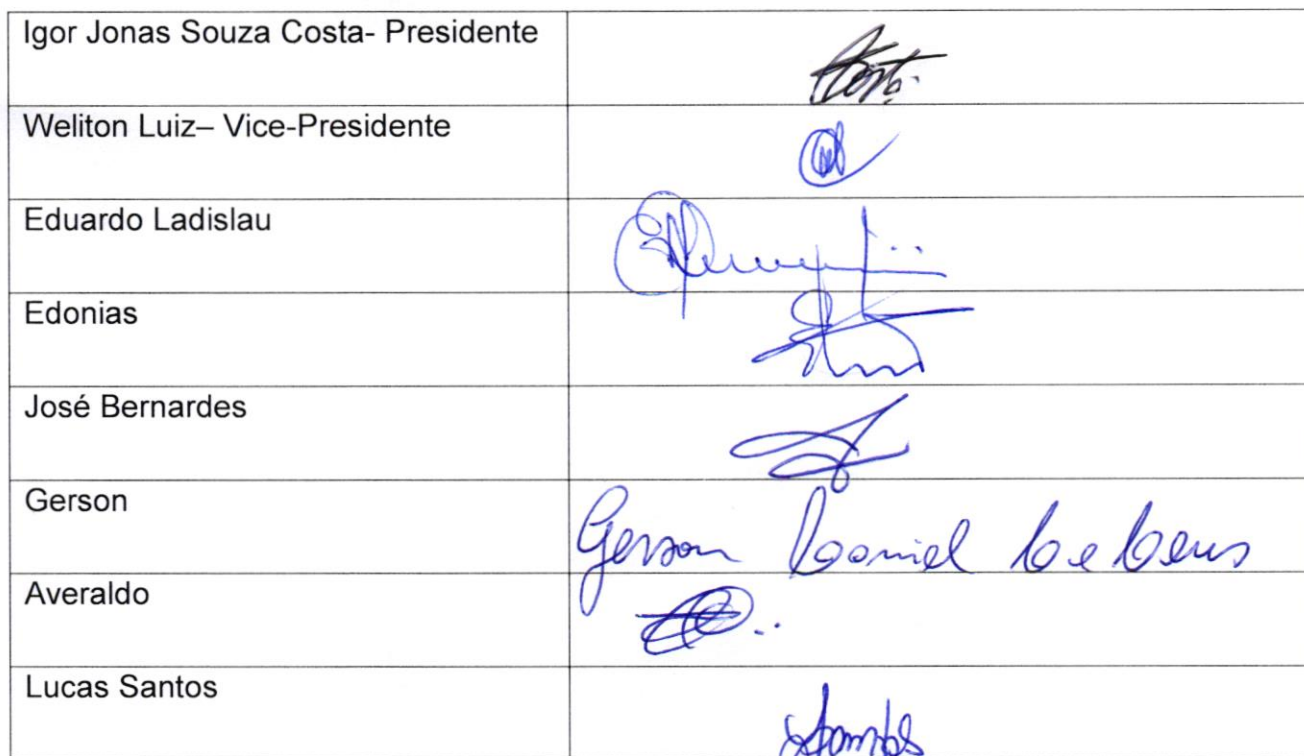 Igor Jonas Souza Costa- Presidente
Weliton Luiz– Vice-Presidente
Eduardo Ladislau
Edonias
José Bernardes
Gerson
Gerson Daniel
Averaldo
Lucas Santos
Santos